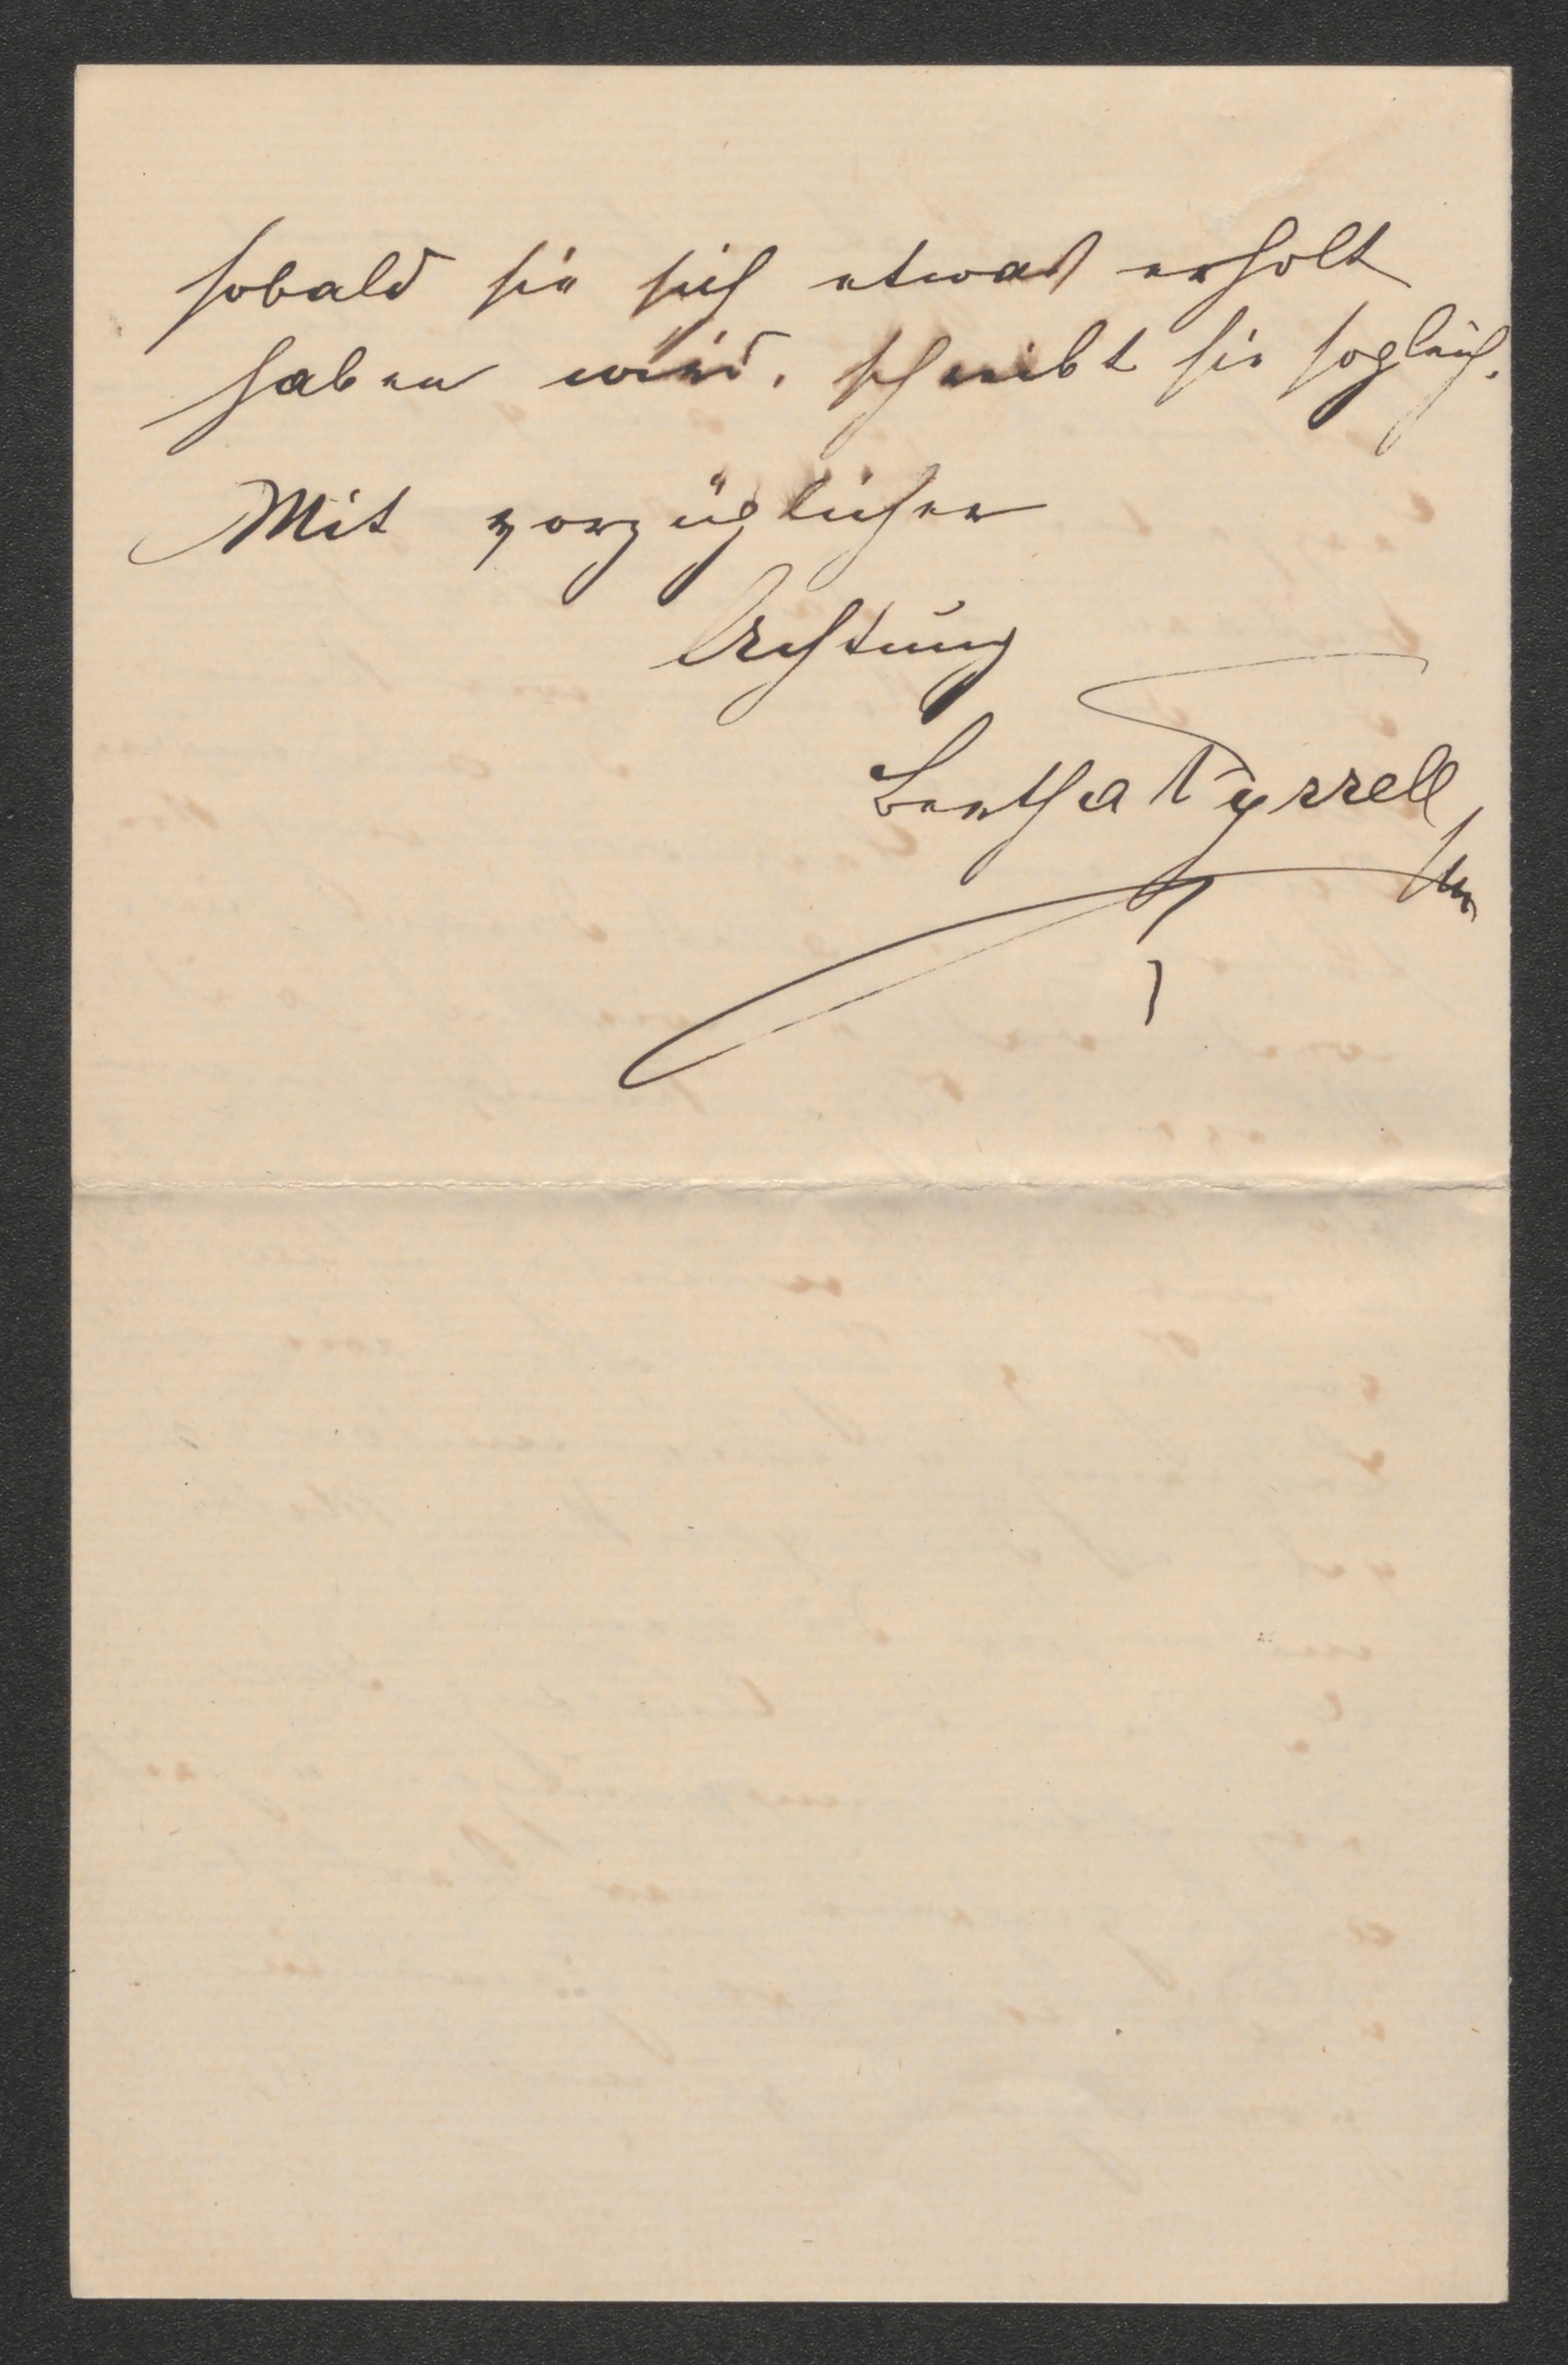 sobald sie sich etwas erholt
haben wird, schreibt sie sogleich.
Mit vorzüglicher
Achtung
Bertha Tyrrell